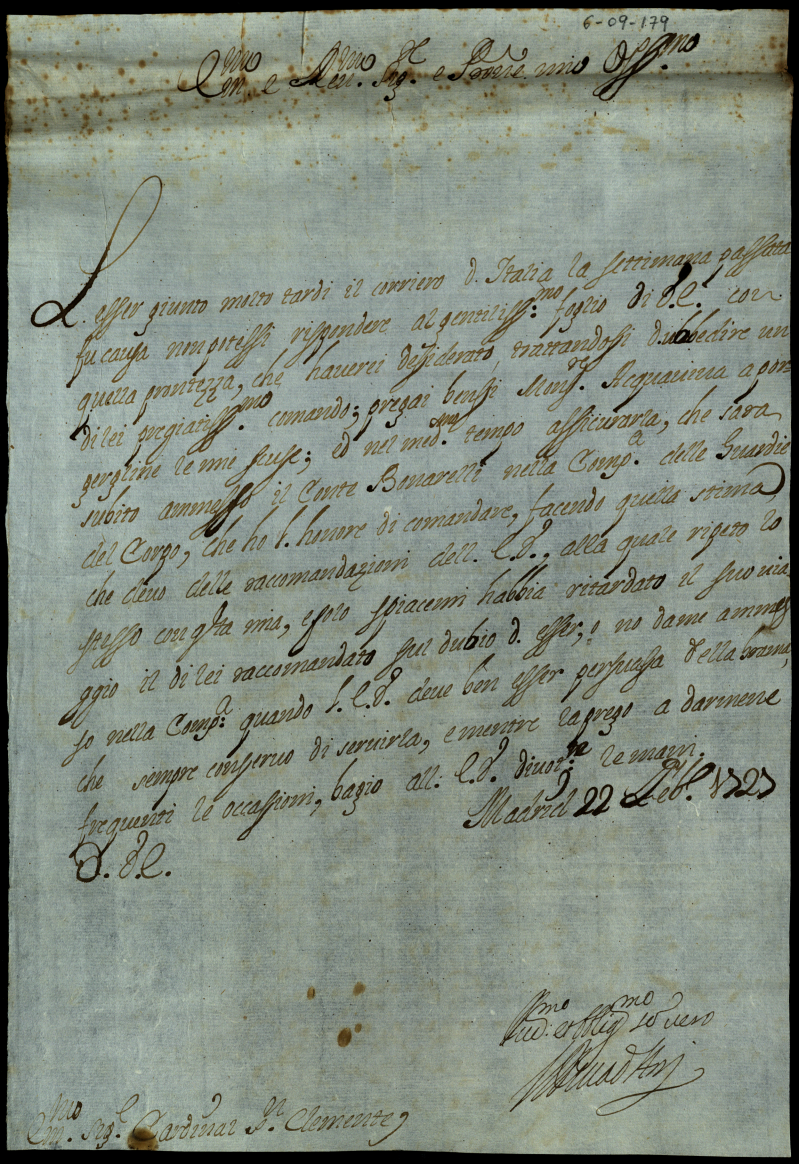 6-09-179
Em.mo e Rev.mo Sig.r e P.rone mio Oss.mo
L'esser giunto molto tardi il corriero d'Italia la settimana passata
fu causa non potessi rispondere al gentiliss:mo foglio di V.E. con
quella prontezza, che haverei desiderato, trattandosi d'ubbedire un
di lei pregiatiss.mo comando; pregai bensi Mons.re Acquaviva a por=
gergline le mie scuse; ed nel med.smo tempo assicurarla, che sara
subito ammesso il Conte Bonarelli nella Comp.a delle Guardie
del Corpo, che ho l'honore di comandare, facendo quella stima,
che devo delle raccomandazioni dell'E.V., alla quale ripeto lo
stesso con q.ta mia, e solo spiacemi habbia ritardato il suo via=
ggio il di lei raccomandato sul dubio d'esser, o no da me ammes=
so nella Comp.a quando l'E.V. deve ben esser persuasa della brama,
che sempre conservo di servirla, e mentre la prego a darmene
frequenti le occassioni, bagio all'E.V. divot.te le mani.
Madrid 22 Feb.o 1727
D. V.E.
Em.mo Sig.r Cardinal S.n Clemente